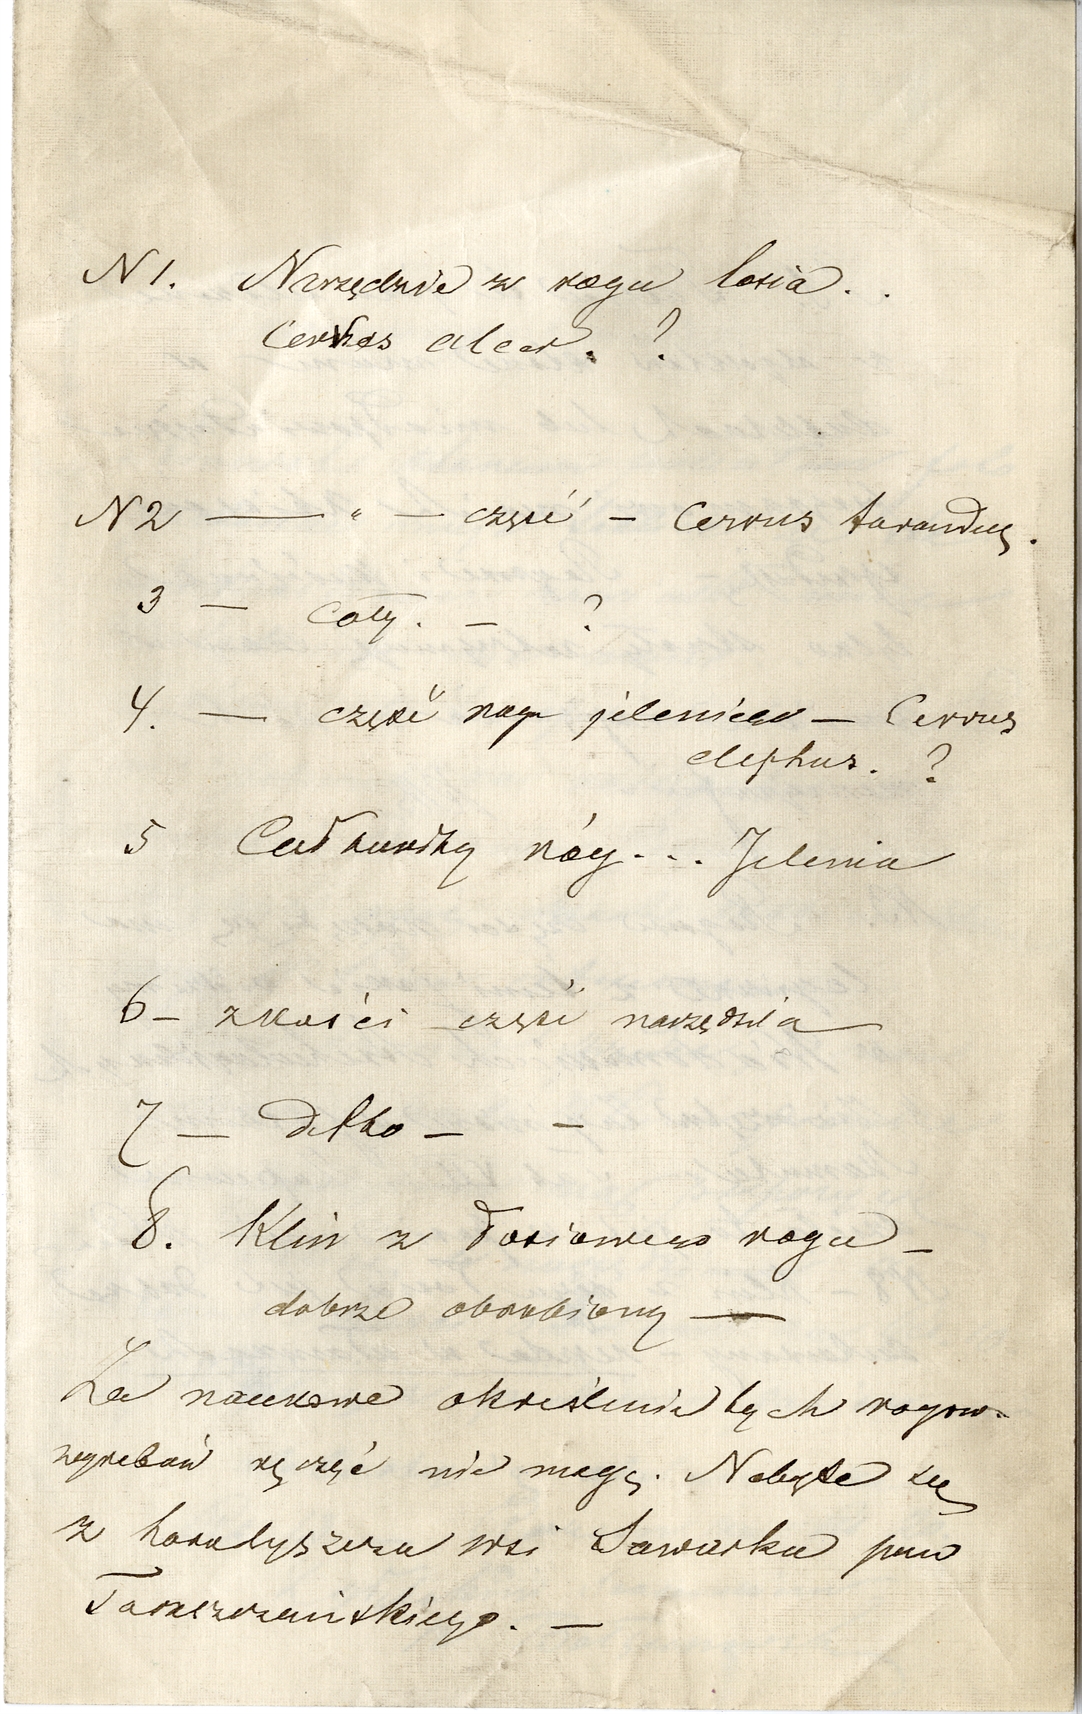 N 1. Narzędzie z rogu łosia . .
Cervus alces. ?
N 2 — " — część — Cervus tarandus.
3 — cały. — ?
4. — część rogu jeleniego — Cervus
elephus. ?
5 Całkowity róg... Jelenia
6 — z kości część narzędzia —
7 — detto — —
8. Klin z łosiowego rogu —
dobrze obrobiony —
Za naukowe określenie tych rogow.
ręczyć nie mogę. Nabyte są
z horodyszcza wsi Sawarka pow
Taraszczańskiego. —